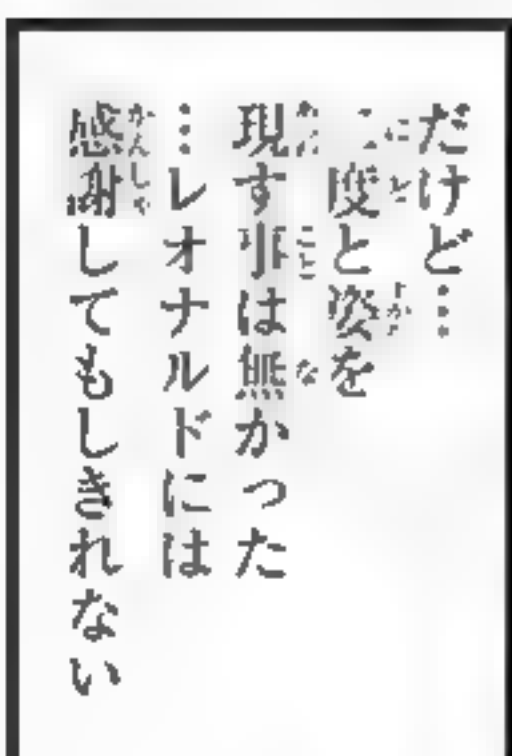 だけど…
二度と姿を
現す事は無かった
…レオナルドには
感謝してもしきれない